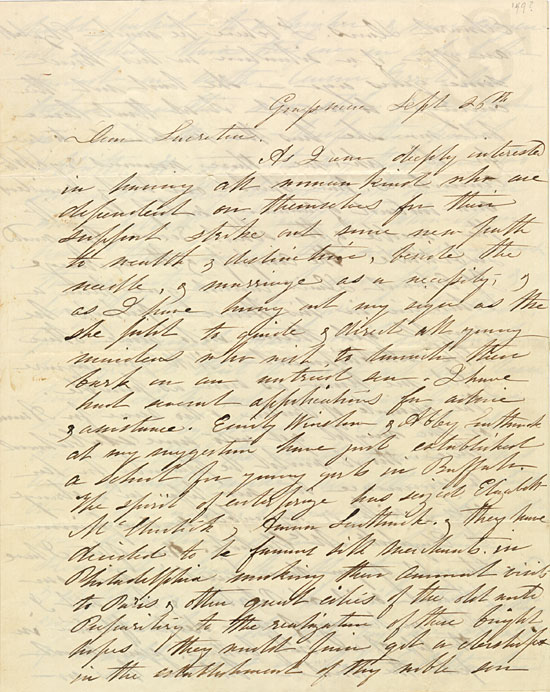 Grassmere Sept 26th
Dear Lucretia.
As I am deeply interested
in having all womankind who are
dependent on themselves for their
support strike out some new path
to wealth & distinction, beside the
needle, & marriage as a necessity, &
as I have hung out my sign as the
she pilot to guide & direct all young
maidens who wish to launch their
bark on an untried sea. I have
had several applications for advice
& assistance. Emily Winslow & Abby
at my suggestion have just established
a school for young girls in Buffalo.
The spirit of enterprize has seized Elizabeth
McClintock & Anna Southwick. & they have
decided to be famous silk merchants in
Philadelphia making their annual visit
to Paris, & other great cities of the old world
Preparatory to the realization of these bright
hopes they would fain get a clerkship
in the establishment of thy noble son